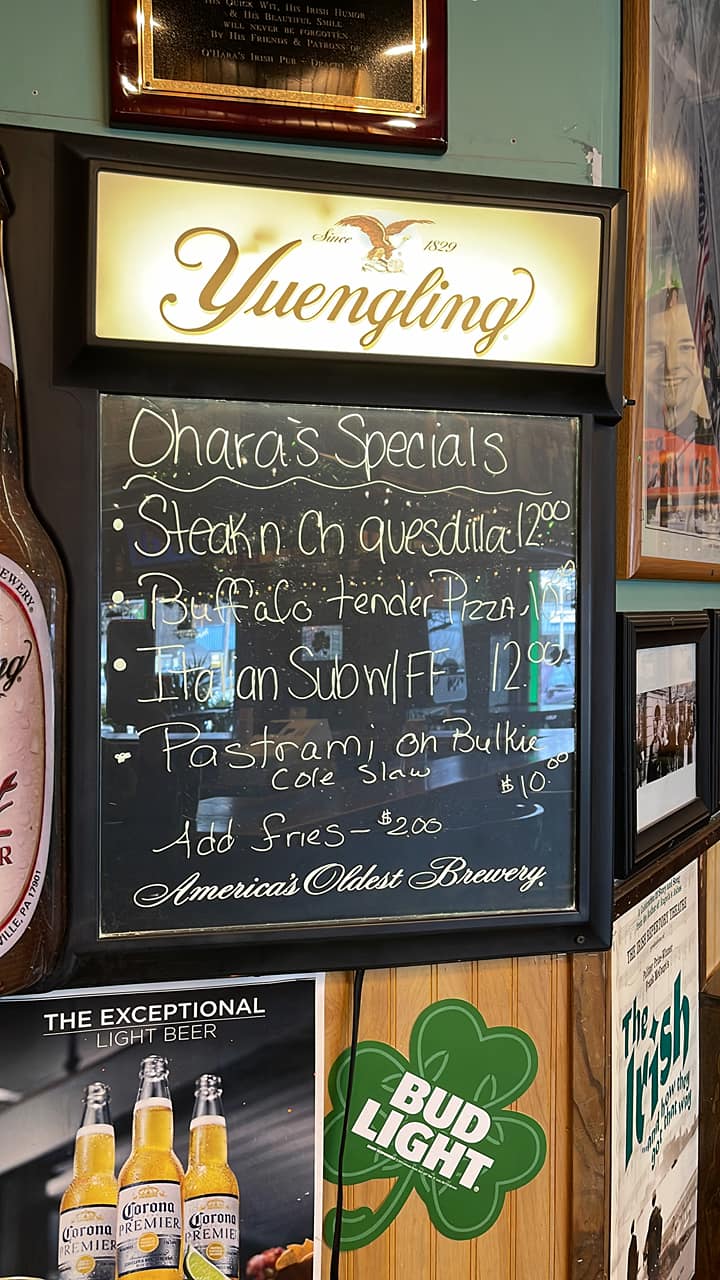 His Quick Wit, His Irish Humor
& His Beautiful Smile
will never be forgotten.
By His Friends & Patrons of
O'Hara's Irish Pub -
Since 1829
Yuengling
Ohara's Specials
• Steak n. Ch quesdilla 12.00
• Buffalo tender Pizza.
• Italian Sub w/ FF 12.00
• Pastrami on Bulkie
Cole Slaw $10.00
Add fries - $2.00
America's Oldest Brewery.
EWERY
R
VILLE, PA 17901
THE EXCEPTIONAL
LIGHT BEER
Corona PREMIER
Corona PREMIER
Corona PREMIER
BUD
LIGHT
THE IRISH REPERTORY THEATRE
The
Irish
...and how they
got that way